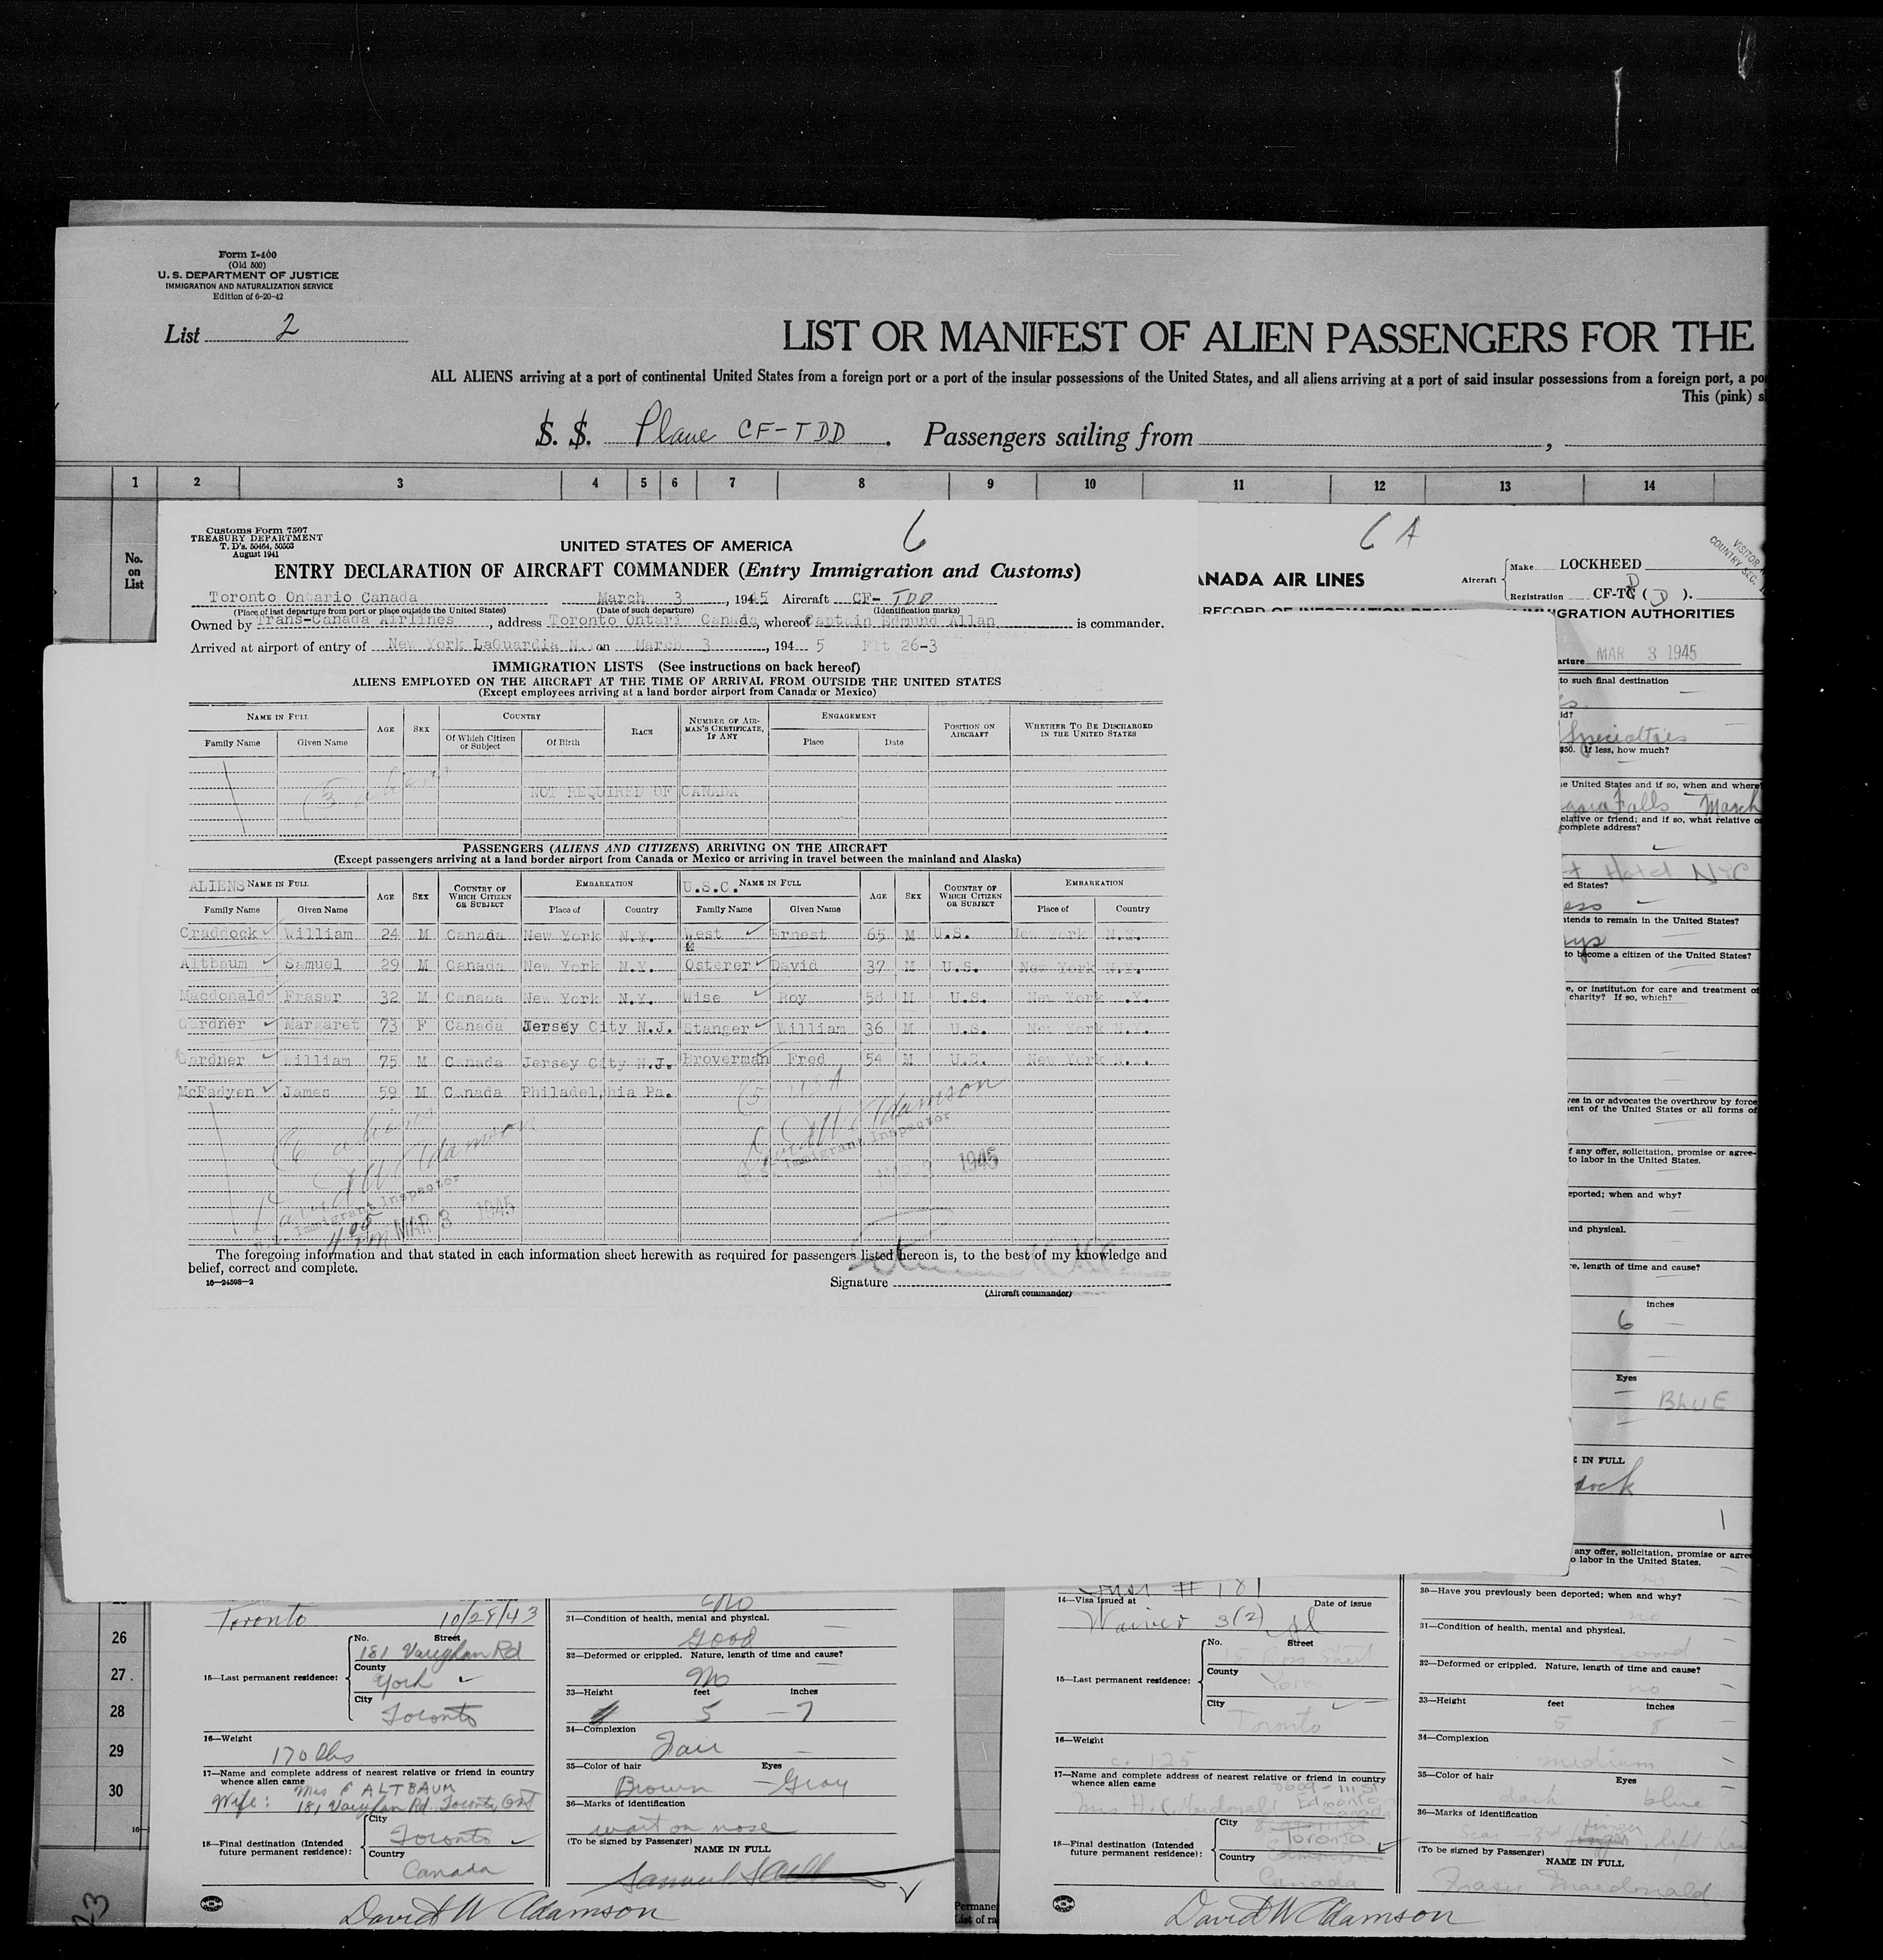 Form I-400
(Old 500)
U. S. DEPARTMENT OF JUSTICE
IMMIGRATION AND NATURALIZATION SERVICE
Edition of 6-20-42
List 2
LIST OR MANIFEST OF ALIEN PASSENGERS FOR THE
ALL ALIENS arriving at a port of continental United States from a foreign port or a port of the insular possessions of the United States, and all aliens arriving at a port of said insular possessions from a foreign port, a po
This (pink) s
S. S. Plane CF-TDD. Passengers sailing from ,
1 2 3 4 5 6 7 8 9 10 11 12 13 14
No. on List
Customs Form 7507
TREASURY DEPARTMENT
T. D's. 50464, 50503
August 1941
6
UNITED STATES OF AMERICA
ENTRY DECLARATION OF AIRCRAFT COMMANDER (Entry Immigration and Customs)
Toronto Ontario Canada March 3, 1945 Aircraft CF- TDD
(Place of last departure from port or place outside the United States) (Date of such departure) (Identification marks)
Owned by Trans-Canada Airlines, address Toronto Ontari Canada, whereof Captain Edmund Allan is commander.
Arrived at airport of entry of New York LaGuardia N. on March 3, 194 5 Flt 26-3
IMMIGRATION LISTS (See instructions on back hereof)
ALIENS EMPLOYED ON THE AIRCRAFT AT THE TIME OF ARRIVAL FROM OUTSIDE THE UNITED STATES
(Except employees arriving at a land border airport from Canada or Mexico)
NAME IN FULL AGE SEX COUNTRY RACE NUMBER OF AIRMAN'S CERTIFICATE, IF ANY ENGAGEMENT POSITION ON AIRCRAFT WHETHER TO BE DISCHARGED IN THE UNITED STATES
Family Name Given Name Of Which Citizen or Subject Of Birth Place Date
NOT REQUIRED OF CANADA
PASSENGERS (ALIENS AND CITIZENS) ARRIVING ON THE AIRCRAFT
(Except passengers arriving at a land border airport from Canada or Mexico or arriving in travel between the mainland and Alaska)
ALIENS NAME IN FULL AGE SEX COUNTRY OF WHICH CITIZEN OR SUBJECT EMBARKATION U.S.C. NAME IN FULL AGE SEX COUNTRY OF WHICH CITIZEN OR SUBJECT EMBARKATION
Family Name Given Name Place of Country Family Name Given Name Place of Country
Craddock William 24 M Canada New York N.Y. West Ernest 65 M U.S. New York N.Y.
Altbaum Samuel 29 M Canada New York N.Y. Osterer David 37 M U.S. New York N.Y.
Macdonald Fraser 32 M Canada New York N.Y. Wise Roy 58 M U.S. New York .Y.
Gardner Margaret 73 F Canada Jersey City N.J. Stanger William 36 M U.S. New York N.Y.
Gardner William 75 M Canada Jersey City N.J. Broverman Fred 54 M U.S. New York N.Y.
McFadyen James 59 M Canada Philadelphia Pa.
(5 USA
(6 aliens
David W Adamson
Immigrant Inspector
MAR 3 1945
David W Adamson
Immigrant Inspector
400 PM MAR 3 1945
The foregoing information and that stated in each information sheet herewith as required for passengers listed hereon is, to the best of my knowledge and
belief, correct and complete.
16-24598-2
Signature
(Aircraft commander)
6 A
ANADA AIR LINES
Aircraft Make LOCKHEED
Registration CF-TC ( D ).
D
IGRATION AUTHORITIES
arture MAR 3 1945
to such final destination
Specialties
$50. If less, how much?
e United States and if so, when and where
gara Falls - March
elative or friend; and if so, what relative o
complete address?
Hotel NYC
ed States?
ess
tends to remain in the United States?
ays
to become a citizen of the United States?
e, or institution for care and treatment of
charity? If so, which?
ves in or advocates the overthrow by force
ent of the United States or all forms of
f any offer, solicitation, promise or agree-
to labor in the United States.
eported; when and why?
and physical.
re, length of time and cause?
inches
6
Eyes
BLUE
E IN FULL
dock
any offer, solicitation, promise or agree
o labor in the United States.
26
27
28
29
30
Toronto 10/28/43
No. Street
181 Vaughan Rd
15—Last permanent residence: County
York
City
Toronto
16—Weight
170 lbs
17—Name and complete address of nearest relative or friend in country
whence alien came
Mrs. F ALTBAUM
Wife: 181 Vaughan Rd. Toronto, Ont
18—Final destination (Intended future permanent residence): City
Toronto
Country
Canada
No
31—Condition of health, mental and physical.
Good
32—Deformed or crippled. Nature, length of time and cause?
No
33—Height feet inches
5 - 7
34—Complexion
Fair
35—Color of hair Eyes
Brown - Gray
36—Marks of identification
wart on nose
(To be signed by Passenger) NAME IN FULL
David W Adamson
Permane
List of ra
14—Visa Issued at Date of issue
Waiver 3(2)
No. Street
15—Last permanent residence: County
York
City
Toronto
16—Weight
125
17—Name and complete address of nearest relative or friend in country
whence alien came
Mrs H. C. Macdonald, Edmonton
Canada
18—Final destination (Intended future permanent residence): City
Toronto
Country
Canada
30—Have you previously been deported; when and why?
no
31—Condition of health, mental and physical.
good
32—Deformed or crippled. Nature, length of time and cause?
no
33—Height feet inches
5 8
34—Complexion
medium
35—Color of hair Eyes
dark blue
36—Marks of identification
(To be signed by Passenger) NAME IN FULL
Fraser Macdonald
David W Adamson